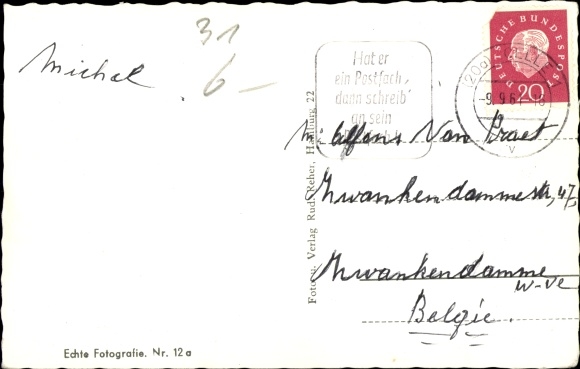 Michel
31
6-
Hat er
ein Postfach,
dann schreib'
an sein
DEUTSCHE BUNDESPOST
20
(20a) CELLE
-9.9.61-18
v
Mr. Alfons Van Praet
Zwankendammestr, 47,
Zwankendamme
W-Vl
Belgie.
Fotogr. Verlag Rudi Reher, Hamburg 22
Echte Fotografie. Nr. 12a